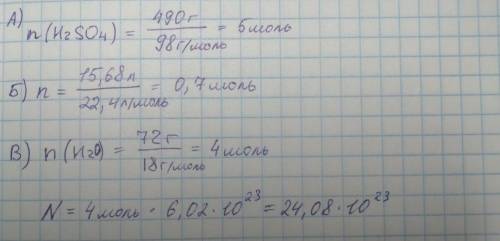 А) n(H₂SO₄) = 490г / 98г/моль = 5моль
Б) n = 15,68л / 22,4л/моль = 0,7моль
В) n(H₂O) = 72г / 18г/моль = 4моль
N = 4моль · 6,02 · 10²³ = 24,08 · 10²³